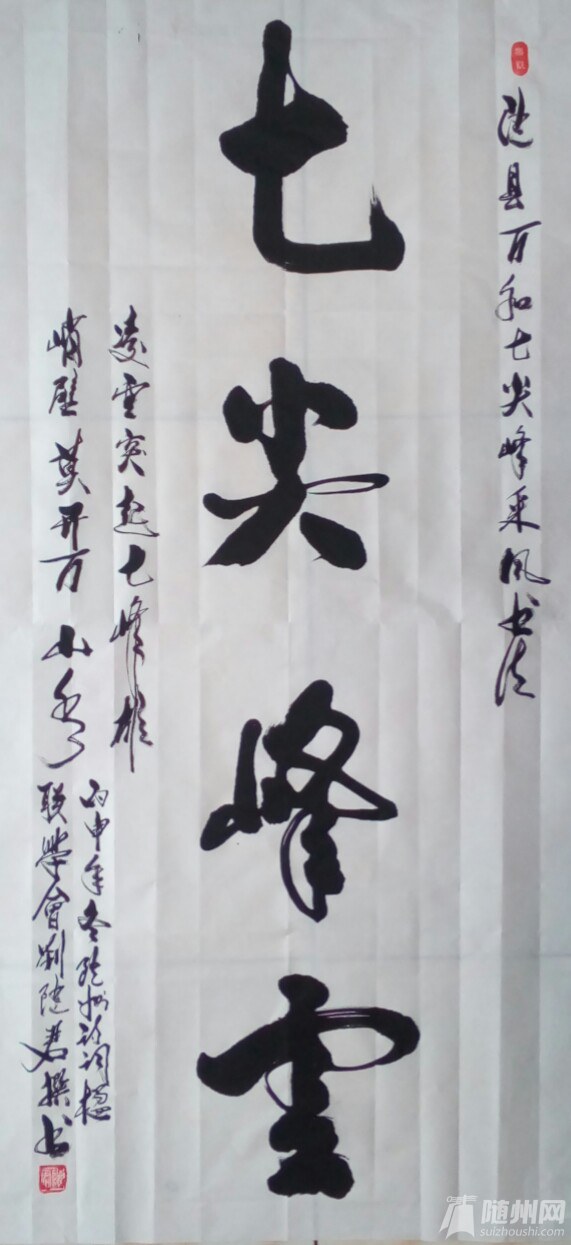 随县万和七尖峰采风书法
七尖峰雲
凌雲突起七峰雄
峭壁莫开万山秀
丙申年冬随州诗词楹
联學會刘随君撰书
随州网
suizhoushi.com